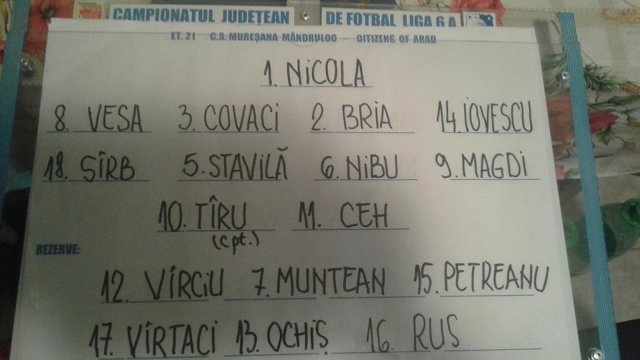 CAMPIONATUL JUDEȚEAN DE FOTBAL LIGA 6 A
ET. 21 C.S. MUREȘANA MÂNDRULOC - DITIZENS OF ARAD
1. NICOLA
8. VESA 3. COVACI 2. BRIA 14. IOVESCU
18. SÎRB 5. STAVILĂ 6. NIBU 9. MAGDI
10. TÎRU 11. CEH
(cpt.)
REZERVE:
12. VÎRCIU 7. MUNTEAN 15. PETREANU
17. VÎRTACI 13. OCHIȘ 16. RUS